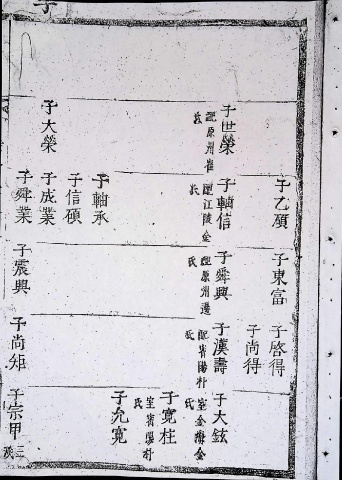 子
子乙碩
子東富
子啓得
子尚得
子世榮
配原州崔氏
子軸信
配江陵金氏
子舜興
配原州邊氏
子漢壽
配密陽朴氏
子大鉉
室金海金氏
子寬柱
室密陽朴氏
子允寬
子軸承
子信碩
子大榮
子成業
子舜業
子震興
子尚矩
子宗甲
三